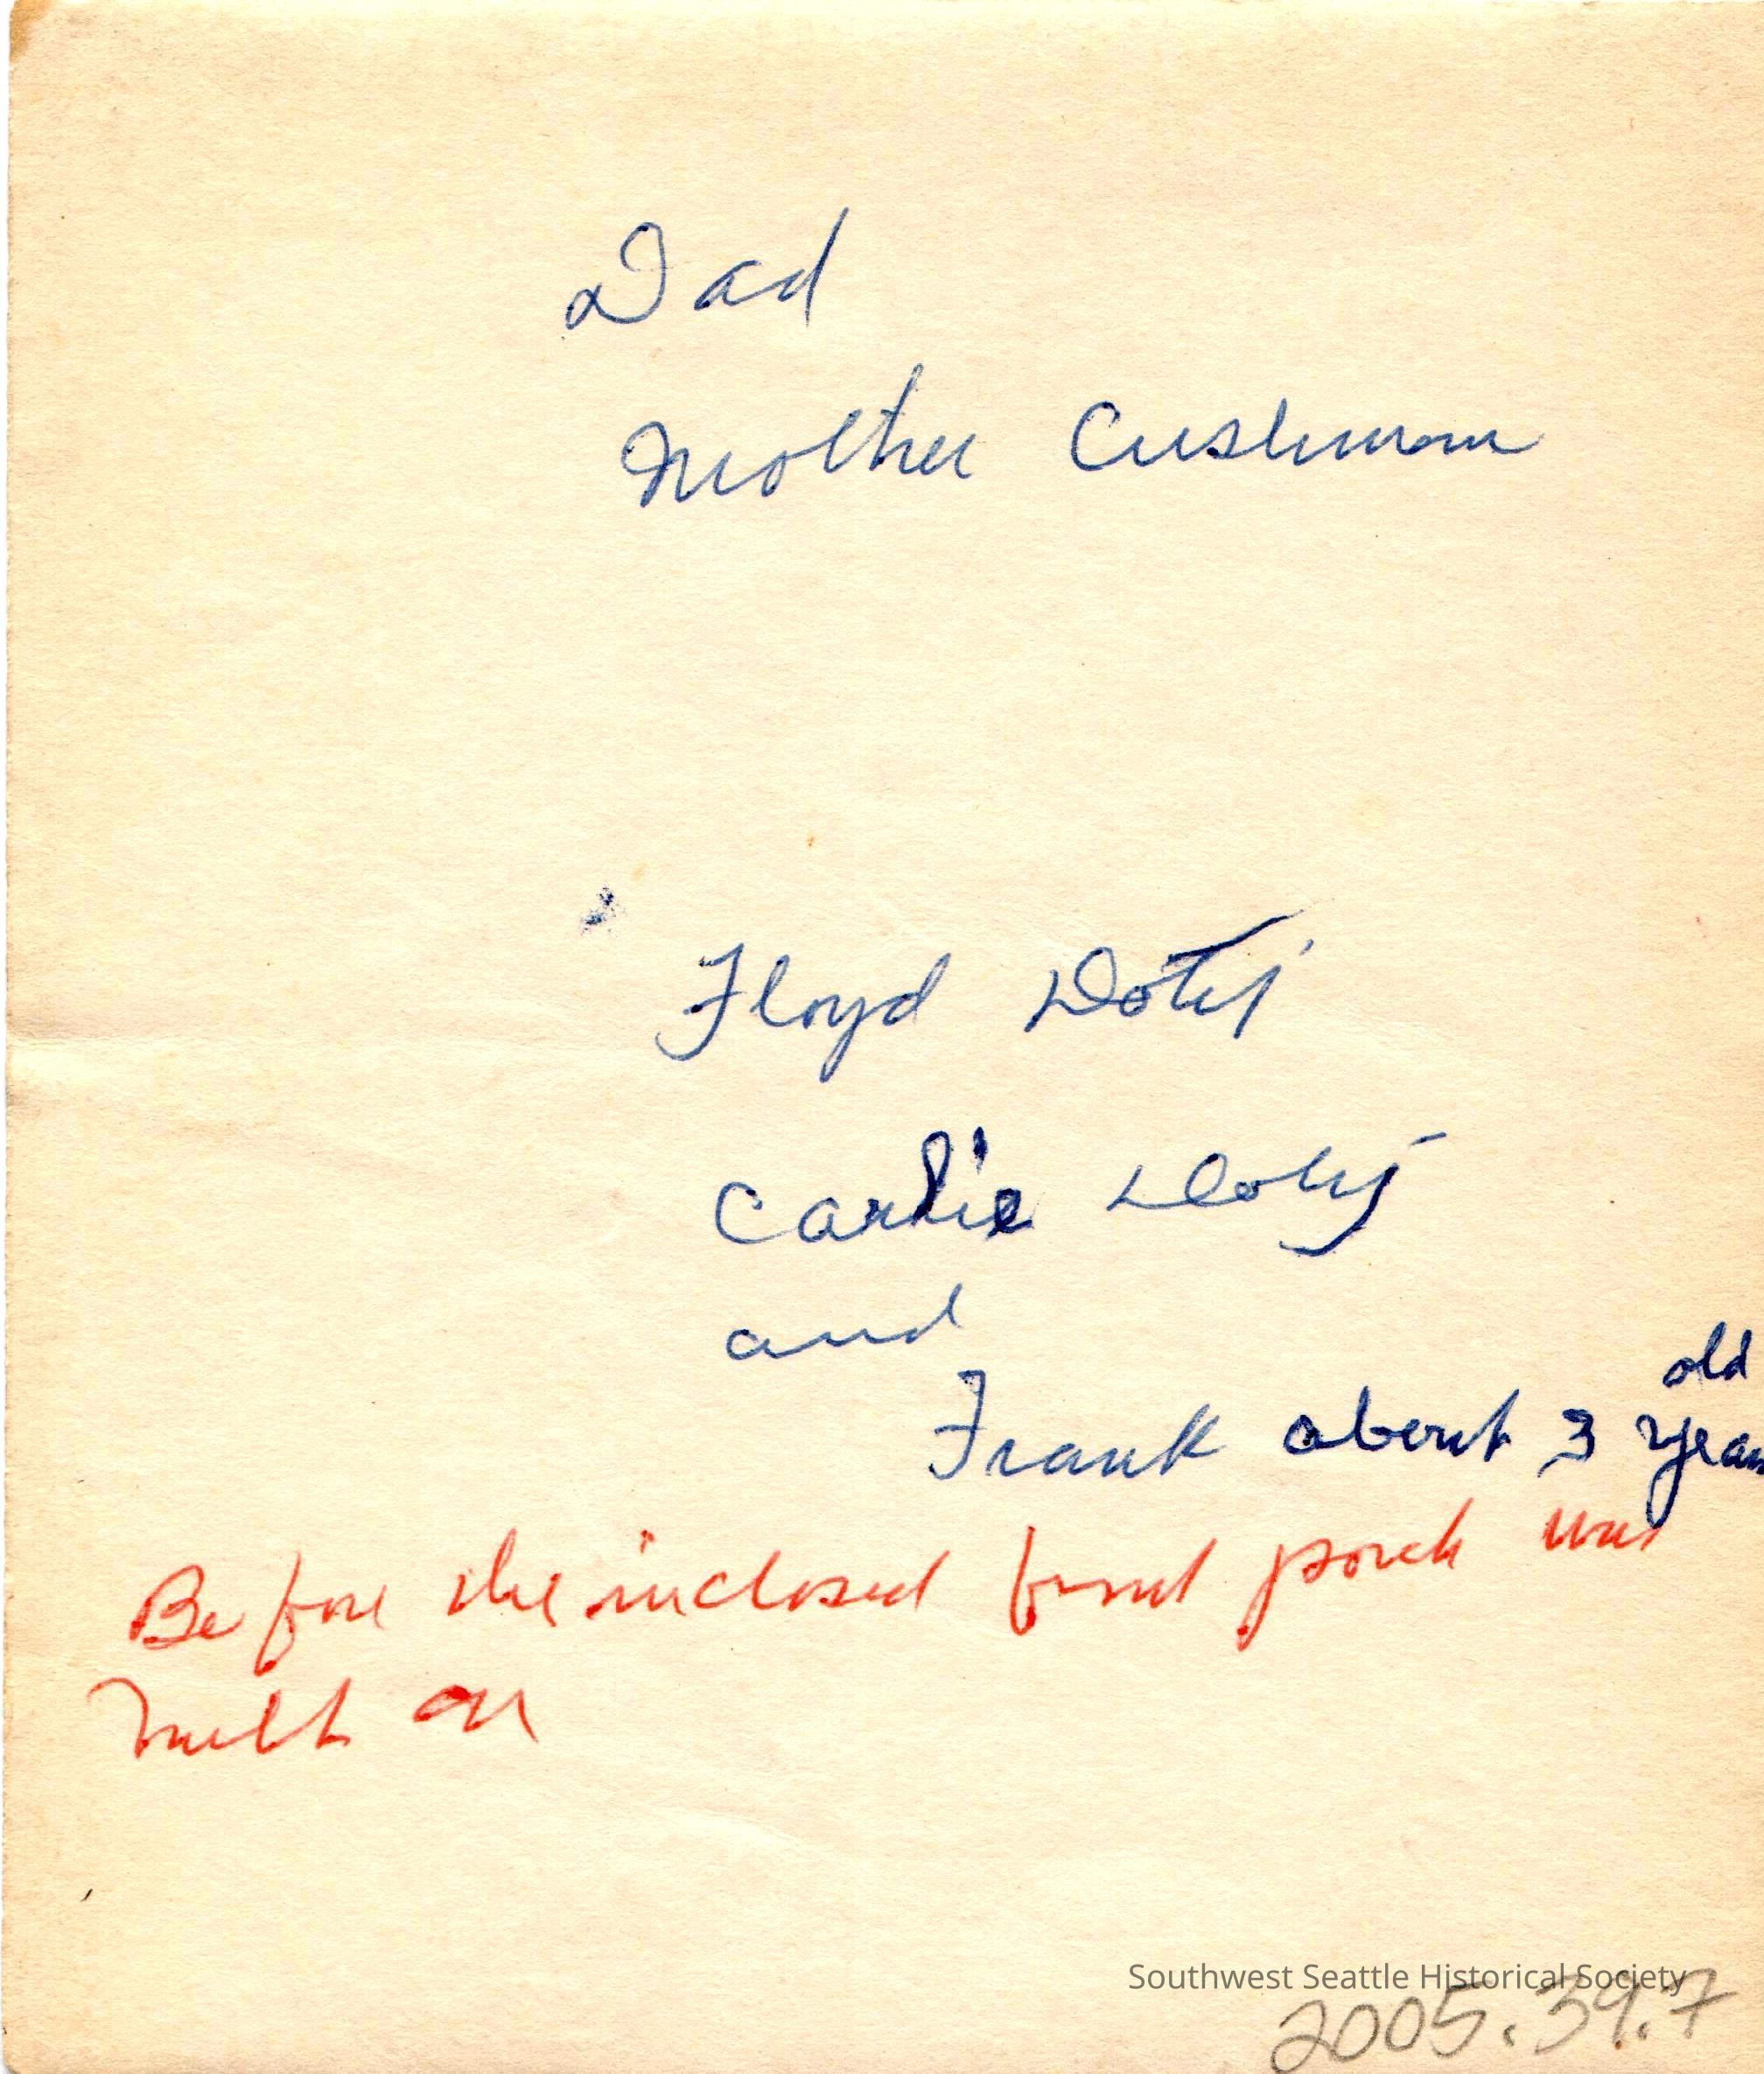 Dad
Mother Cushman
Floyd Doty
Carlie Doty
and
old
Frank about 3 years
Before the inclosed front porch was
built on
Southwest Seattle Historical Society
2005.39.7